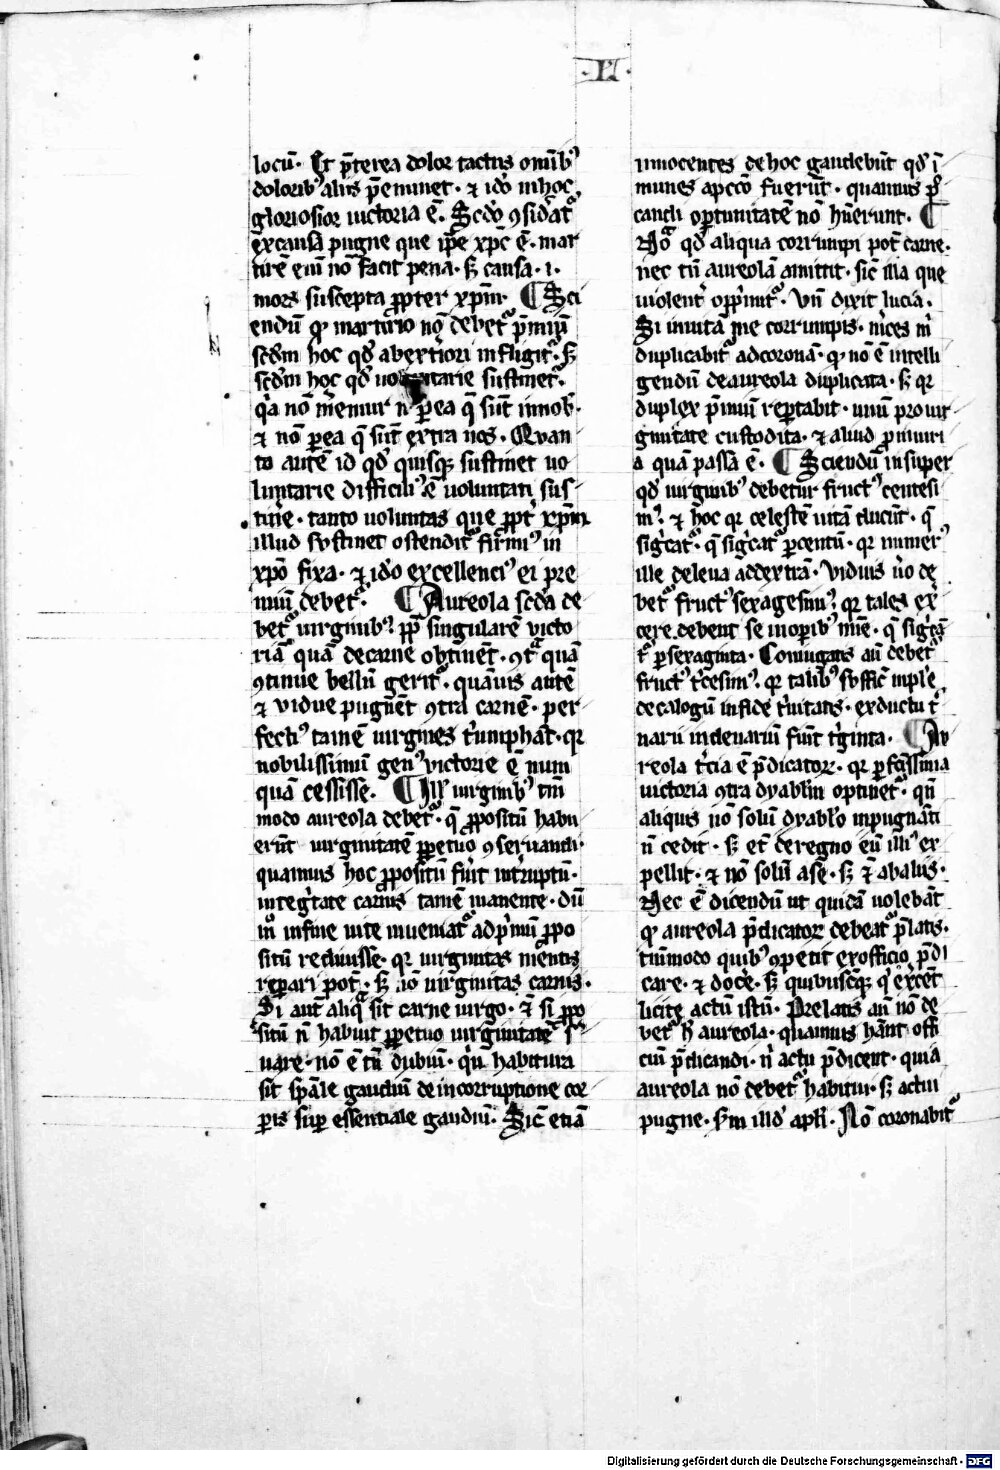 ·LI·
locū· Et p̄terea dolor tactus omīb᷒
dolorib᷒ aliis p̄eminet· ⁊ iđo in hoc
gloriosior uictoria ē· Scđo ꝯsiđat᷑
ex causa pugne que ip̄e xp̄c ē· mar
tirē eni᷒ nō facit pena· sꝫ causa· i·
mors suscepta ꝓpter xp̄m· ¶ Sci
endū ꝙ martirio nō debet᷑ p̄miū
scđm hoc qđ ab exteriori infligit᷑· sꝫ
scđm hoc qđ uoluntarie sustinet᷑·
q̇a nō mēmur n̄ ꝑ ea q̄ sūt in nob̄·
⁊ nō ꝑ ea q̄ sūt extra nos· Quan
to autē id qđ quisqꝫ sustinet uo
luntarie difficili᷒ ē uoluntati sus
tine᷑· tanto uoluntas que ꝓpt᷑ xp̄m
illud sustinet ostendit᷑ firmi᷒ in
xp̄o fixa· ⁊ iđo excellenci᷒ ei pre
miū debet᷑· ¶ Aureola scđa de
bet᷑ uirginib᷒ ꝓp̄ singularē uicto
riā quā de carne obtinet· ꝯt᷑ quā
ꝯtinue bellū gerit᷑· quāuis autē
⁊ vidue pugnēt ꝯtra carnē· per
fecti᷒ tamē uirgines t᷑umphāt· qꝛ
nobilissimū gen᷒ victorie ē num
quā cessisse· ¶ Ill᷒ uirginib᷒ tm̄
modo aureola debet᷑· q̄ ꝓpositū habu
erūt uirginitatē ꝑpetuo ꝯseruandi·
quamuis hoc ꝓpositū fu᷑it int᷑ruptū·
integ᷑tate carnis tamē manente· dū
m̊ in fine uite inueniat᷑ ad p᷑mū ꝓpo
sitū rediisse· qꝛ uirginitas mentis
repari pot̄· sꝫ nō uirginitas carnis·
Si aut̄ aliq̄ sit carne uirgo· ⁊ si ꝓpo
situ n̄ habuit ꝑpetuo uirginitatē s᷑
uare· nō ē tn̄ dubiū· q̇n habitura
sit sp̄ale gaudiū de incorruptione cor
ꝑis suꝑ essentiale gaudiū· Sic̄ etiā
innocentes de hoc gaudebūt qđ ī
munes a pcc̄o fuerūt· quamuis pec
candi oꝑtunitatē nō hu᷑erunt· ¶
Nō qđ aliqua corrumpi pot̄ carne·
nec tn̄ aureolā amittit· sic̄ illa que
uiolent᷑ opp᷑mit᷑· Vn̄ dixit lucia·
Si inuitā me corrumpis· n᷑ces m᷑
duplicabit᷑ ad coronā· ꝙ nō ē intelli
gendū de aureola duplicata· sꝫ qꝛ
duplex p̄miū reportabit· unū pro uir
ginitate custodita· ⁊ aliud pro iniuri
a quā passa ē· ¶ Sciendū insuper
qđ uirginib᷒ debetur fruct᷒ centesi
m᷒· ⁊ hoc qꝛ celestē uitā ducūt· q̄
sig᷑cat᷑· q̄ sig᷑cat᷑ ꝑ centū· qꝛ numer᷒
ille de leua ad dextrā· Viduis u᷑o de
bet᷑ fruct᷒ sexagesim᷒ qꝛ tales ex᷑
cere debent se in oꝑib᷒ mīe· q̄ sig᷑cā
t᷑ ꝑ sexaginta· Coniugatis au᷑ debet᷑
fruct᷒ t᷑cesim᷒· qꝛ talib᷒ sufficit inple᷑
decalogū in fide t᷑nitatis· ex ductu t᷑
narii in denariū fiūt t᷑ginta· ¶ Au
reola t᷑cia ē p̄dicatoꝝ· qꝛ ꝑfc̄issima
uictoria ꝯtra dyabl̄m optinet᷑· qn̄
aliquis nō solū dyabl̄o inpugnāti
n̄ cedit· sꝫ et̄ de regno eū illi᷒ ex
pellit· ⁊ nō solū a se· sꝫ ⁊ ab aliis·
Nec ē dicendū ut quidā uolebāt
ꝙ aureola p̄dicatoꝝ debeat᷑ p̄latis·
tm̄modo quib᷒ ꝯpetit ex officio p̄di
care· ⁊ docē᷑· sꝫ quibuscūqꝫ q̇ exc̄ēt
licite actū istū· Prelatis au᷑ nō de
bet᷑ h᷒ aureola· quamuis hāt offi
ciū p̄dicandi· n᷑ actu p̄dicent· quia
aureola nō debet᷑ habitui· sꝫ actui
pugne· s᷑m illđ apl̄i· Nō coronabit᷑
Digitalisierung gefördert durch die Deutsche Forschungsgemeinschaft · DFG